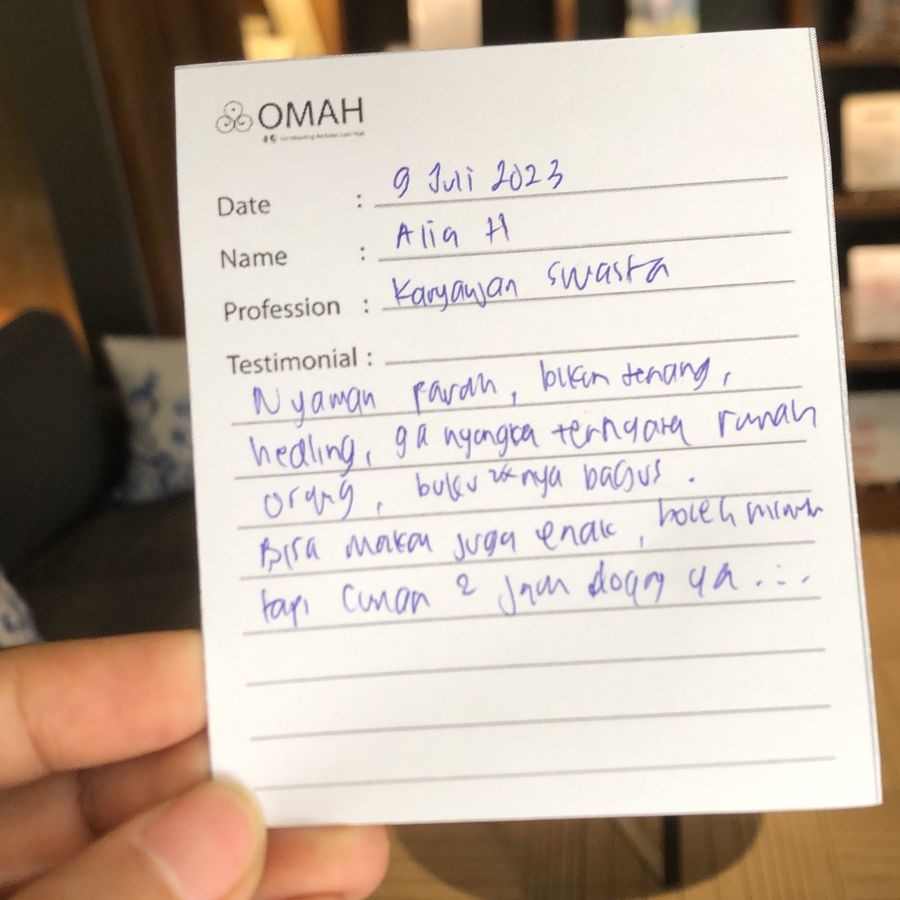 OMAH
Date : 9 Juli 2023
Name : Alia H
Profession : Karyawan swasta
Testimonial :
Nyaman parah, bikin tenang,
healing, ga nyangka ternyata rumah
orang, buku2nya bagus.
Bisa makan juga enak, boleh
tapi cuman 2 jam doang ya...